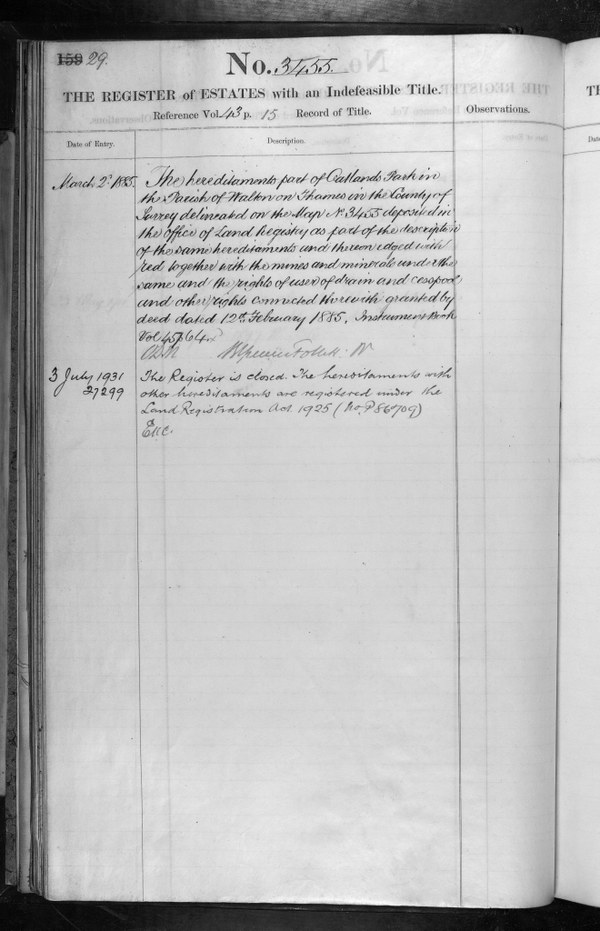 159 29.
No. 3455.
THE REGISTER of ESTATES with an Indefeasible Title.
Reference Vol. 43 p. 15 Record of Title.
Observations.
Date of Entry.
Description.
March 2d. 1885. The hereditaments part of Oatlands Park in
the Parish of Walton on Thames in the County of
Surrey delineated on the Map No. 3455 deposited in
the Office of Land Registry as part of the description
of the same hereditaments and thereon edged with
red together with the mines and minerals under the
same and the rights of user of drain and cesspool
and other rights connected therewith granted by
deed dated 12th. February 1885. Instrument Book
Vol 45 p 64
3 July 1931 The Register is closed. The hereditaments with
27299 other hereditaments are registered under the
Land Registration Act 1925 (No. P86709)